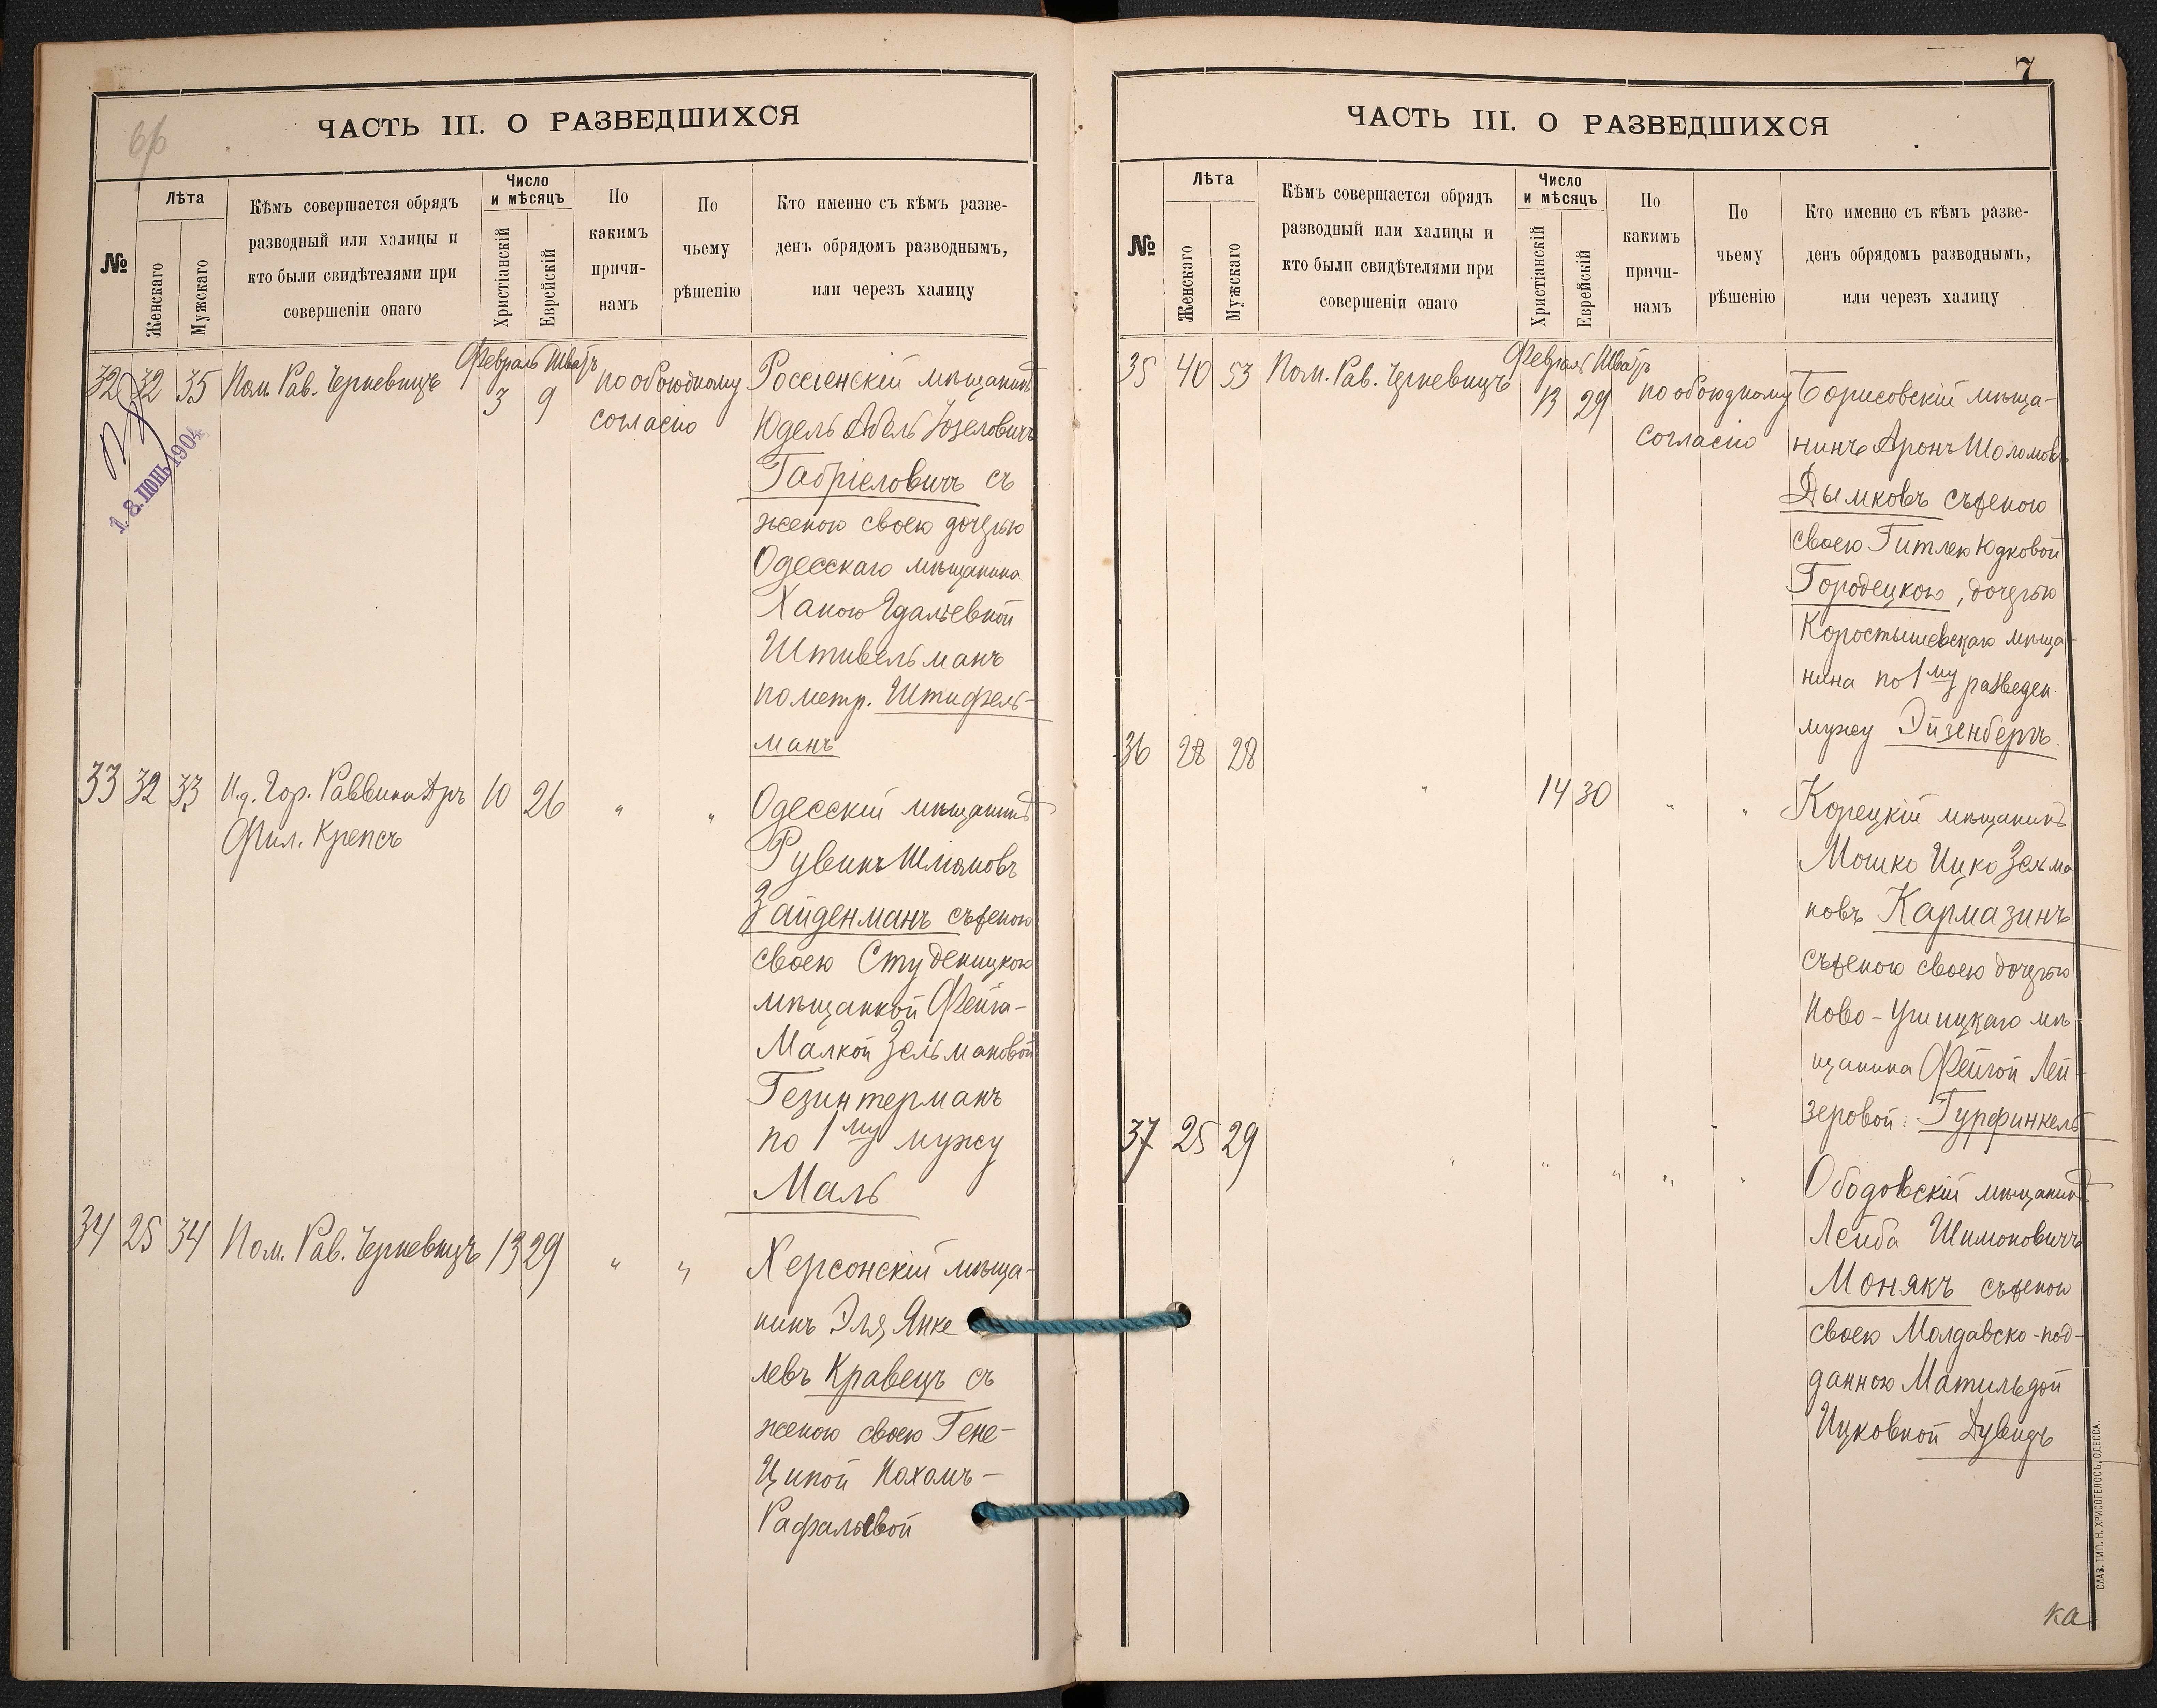 ЧАСТЬ III. О РАЗВЕДШИХСЯ
№
Лѣта
Женскаго
Мужскаго
Кѣмъ совершается обрядъ
разводный или халицы и
кто были свидѣтелями при
совершеніи онаго
Число
и мѣсяцъ
Христіанскій
Еврейскій
По
какимъ
причи-
намъ
По
чьему
рѣшенію
Кто именно съ кѣмъ разве-
денъ обрядомъ разводнымъ,
или черезъ халицу
Февраль Шватъ
32 32 35 Пом. Рав. Черневицъ 3 9 по обоюдному Россіенскій мѣщанинъ
согласію Юдель Абель Іозеловичъ
Габріеловичъ съ
женою своею дочерью
Одесскаго мѣщанина
Ханою Гдальевной
Штивельманъ
по метр. Штифель-
манъ
33 32 33 И.д. Гор. Раввина Дръ 10 26 " " Одесскій мѣщанинъ
Фил. Крепсъ
Рувинъ Шліомовъ
Зайденманъ съ женою
своею Студеницкою
мѣщанкой Фейга-
Малкой Зельмановой
Гезинтерманъ
по 1му мужу
Маль
34 25 34 Пом. Рав. Черневицъ 13 29 " " Херсонскій мѣща-
нинъ Эля Янке
левъ Кравецъ съ
женою своею Гене-
Ципой Нахомъ-
Рафальевой
1.8. ІЮНЬ 1904
7
ЧАСТЬ III. О РАЗВЕДШИХСЯ
№
Лѣта
Женскаго
Мужскаго
Кѣмъ совершается обрядъ
разводный или халицы и
кто были свидѣтелями при
совершеніи онаго
Число
и мѣсяцъ
Христіанскій
Еврейскій
По
какимъ
причи-
намъ
По
чьему
рѣшенію
Кто именно съ кѣмъ разве-
денъ обрядомъ разводнымъ,
или черезъ халицу
Февраль Шватъ
35 40 53 Пом. Рав. Черневицъ 13 29 по обоюдному Борисовскій мѣща-
согласію нинъ Аронъ Шоломовъ
Дымковъ съ женою
своею Гитлею Юдковой
Городецкою, дочерью
Коростышевскаго мѣща-
нина по 1му разведен.
мужу Эйзенбергъ.
36 28 28 " 14 30 " " Корецкій мѣщанинъ
Мошко Ицко Зельма
новъ Кармазинъ
съ женою своею дочерью
Ново-Ушицкаго мѣ-
щанина Фейгой Лей-
зеровой: Гурфинкель
37 25 29 " " " " " Ободовскій мѣщанинъ
Лейба Шимоновичъ
Монякъ съ женою
своею Молдавско-под-
данною Матильдой
Ицковной Дувидъ
ка
СЛАВ. ТИП. Н. ХРИСОГЕЛОСЪ, ОДЕССА.